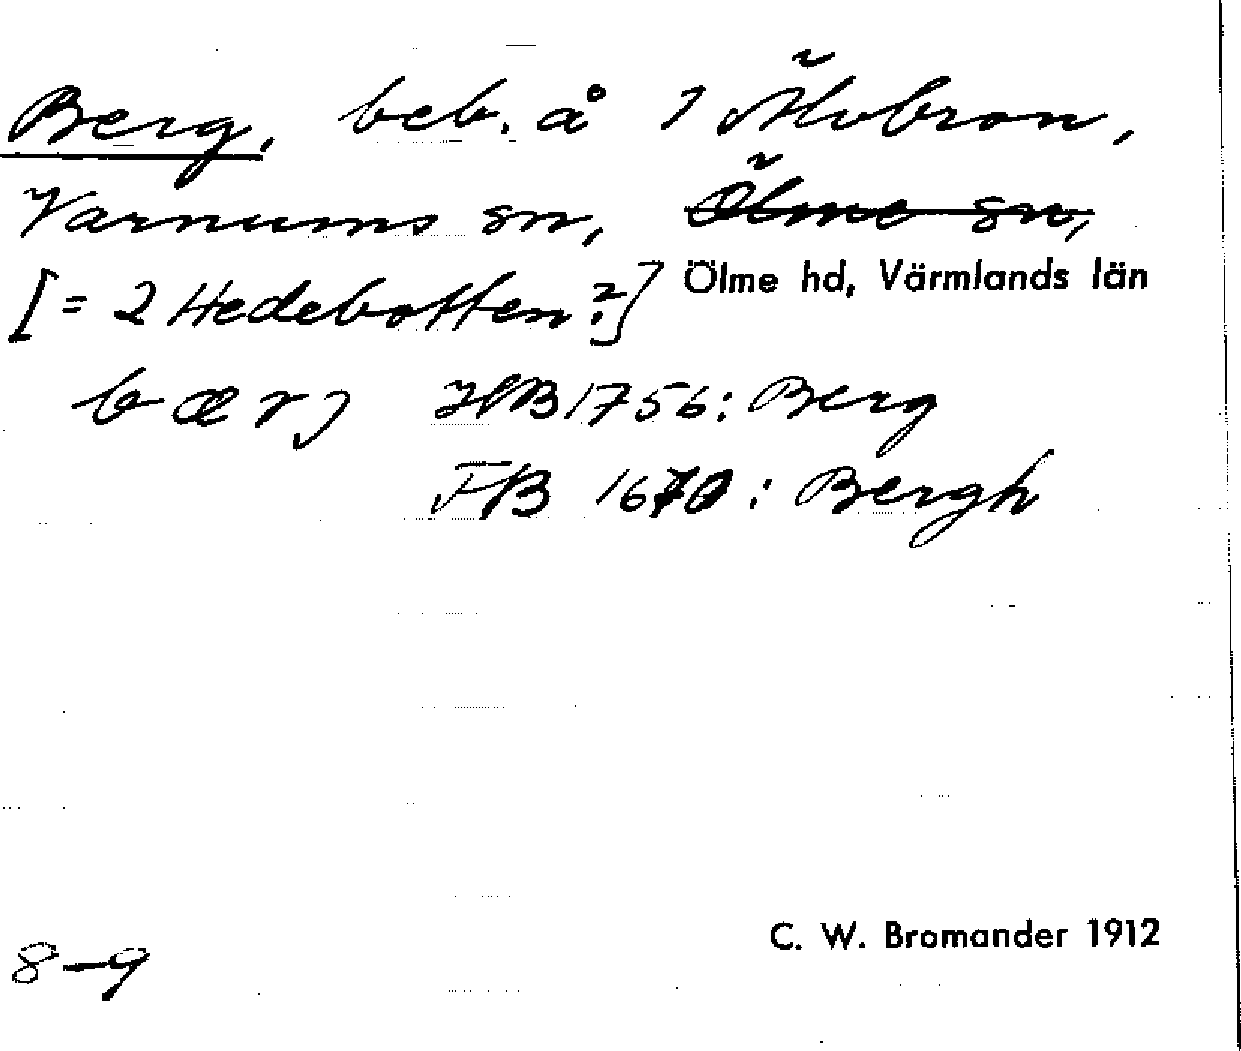 Berg, beb. å 1 Älvbron,
Varnums sn, Ölme sn,
[= 2 Hedebotten?] Ölme hd, Värmlands län
bærj HB 1756: Berg
FB 1670: Bergh
C. W. Bromander 1912
8-9